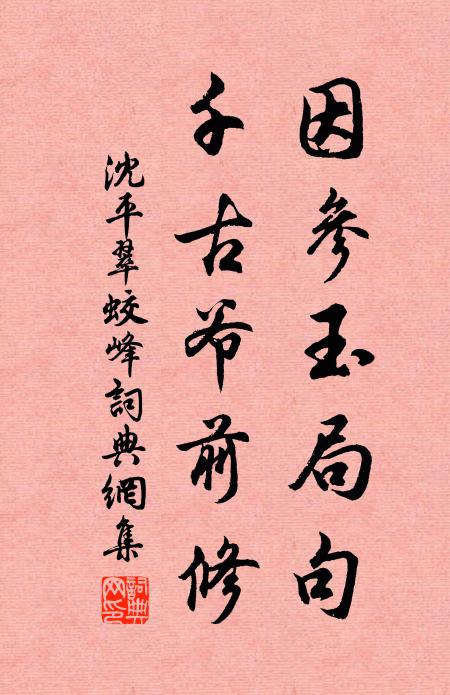 因參玉局句
千古希前修
沈平翠蛟峰詞典網集
詞典
网印